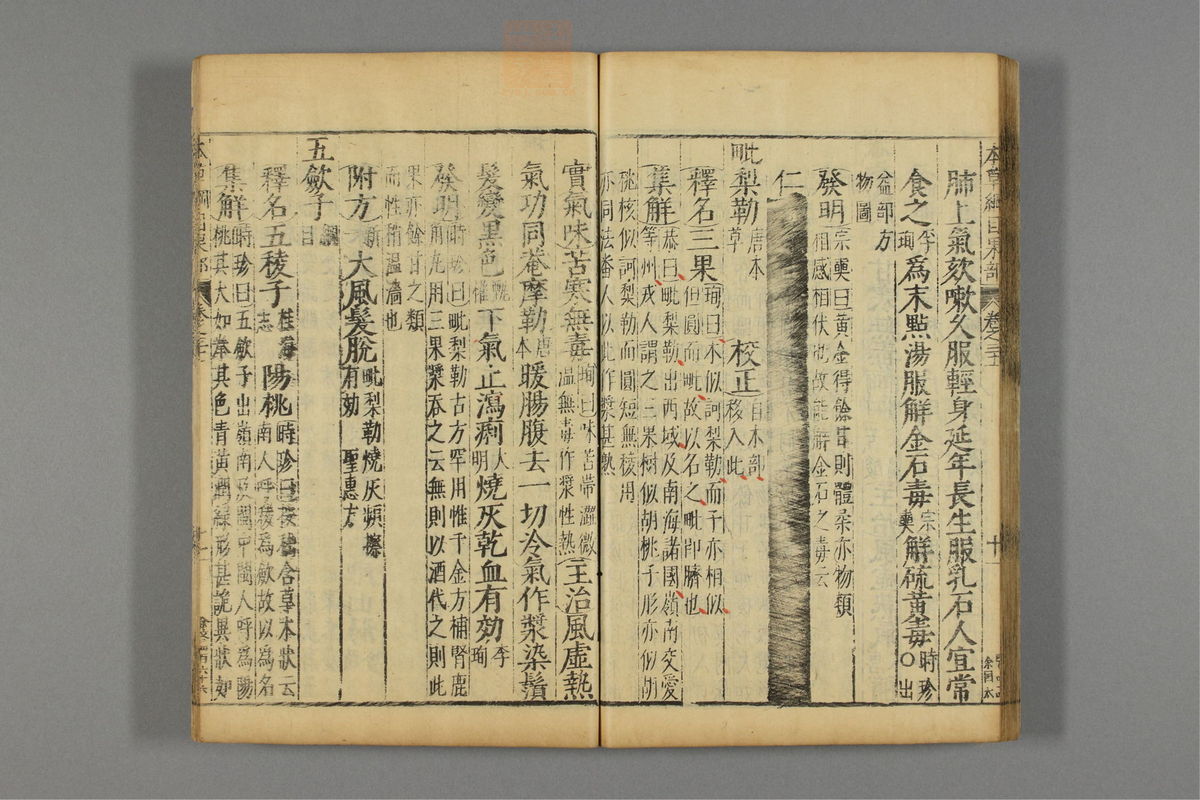 肺上氣欬嗽久服輕身延年長生服乳石人宜常
食之李珣為末點湯服解金石毒宗奭解硫黃毒時珍〇出
益部方物圖
發明宗奭曰黃金得餘甘則體柔亦物類
相感相伏也故能解金石之毒云
仁
毗梨勒唐本草 校正自木部移入此
釋名三果珣曰木似訶梨勒而子亦相似
但圓而毗故以名之毗即臍也
集解恭曰毗梨勒出西域及南海諸國嶺南交愛
等州戎人謂之三果樹似胡桃子形亦似胡
桃核似訶梨勒而圓短無稜用
亦同法番人以此作漿甚熱
實氣味苦寒無毒珣曰味苦帶澀微
溫無毒作漿性熱主治風虛熱
氣功同菴摩勒唐本暖腸腹去一切冷氣作漿染鬚
髮變黑色甄權下氣止瀉痢大明燒灰乾血有効李珣
發明時珍曰毗梨勒古方罕用惟千金方補腎鹿
角丸用三果漿吞之云無則以酒代之則此
果亦餘甘之類
而性稍溫濇也
附方新一大風髮脫毗梨勒燒灰頻擦
有効 聖惠方
五斂子綱目
釋名五稜子桂海志陽桃時珍曰按嵇含草木狀云
南人呼稜為斂故以為名
集解時珍曰五斂子出嶺南及閩中閩人呼為陽
桃其大如拳其色青黃潤綠形甚詭異狀如